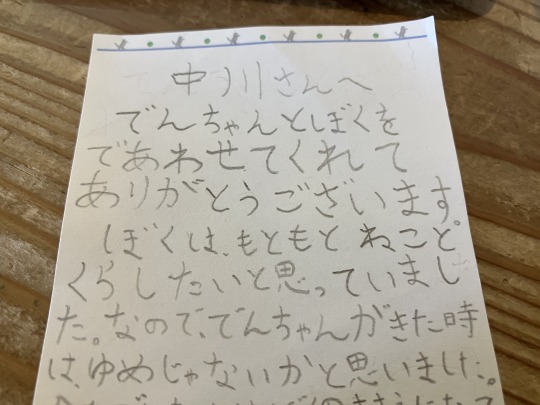 中川さんへ
でんちゃんとぼくを
であわせてくれて
ありがとうございます。
ぼくは、もともとねこと
くらしたいと思っていまし
た。なので、でんちゃんがきた時
は、ゆめじゃないかと思いました。